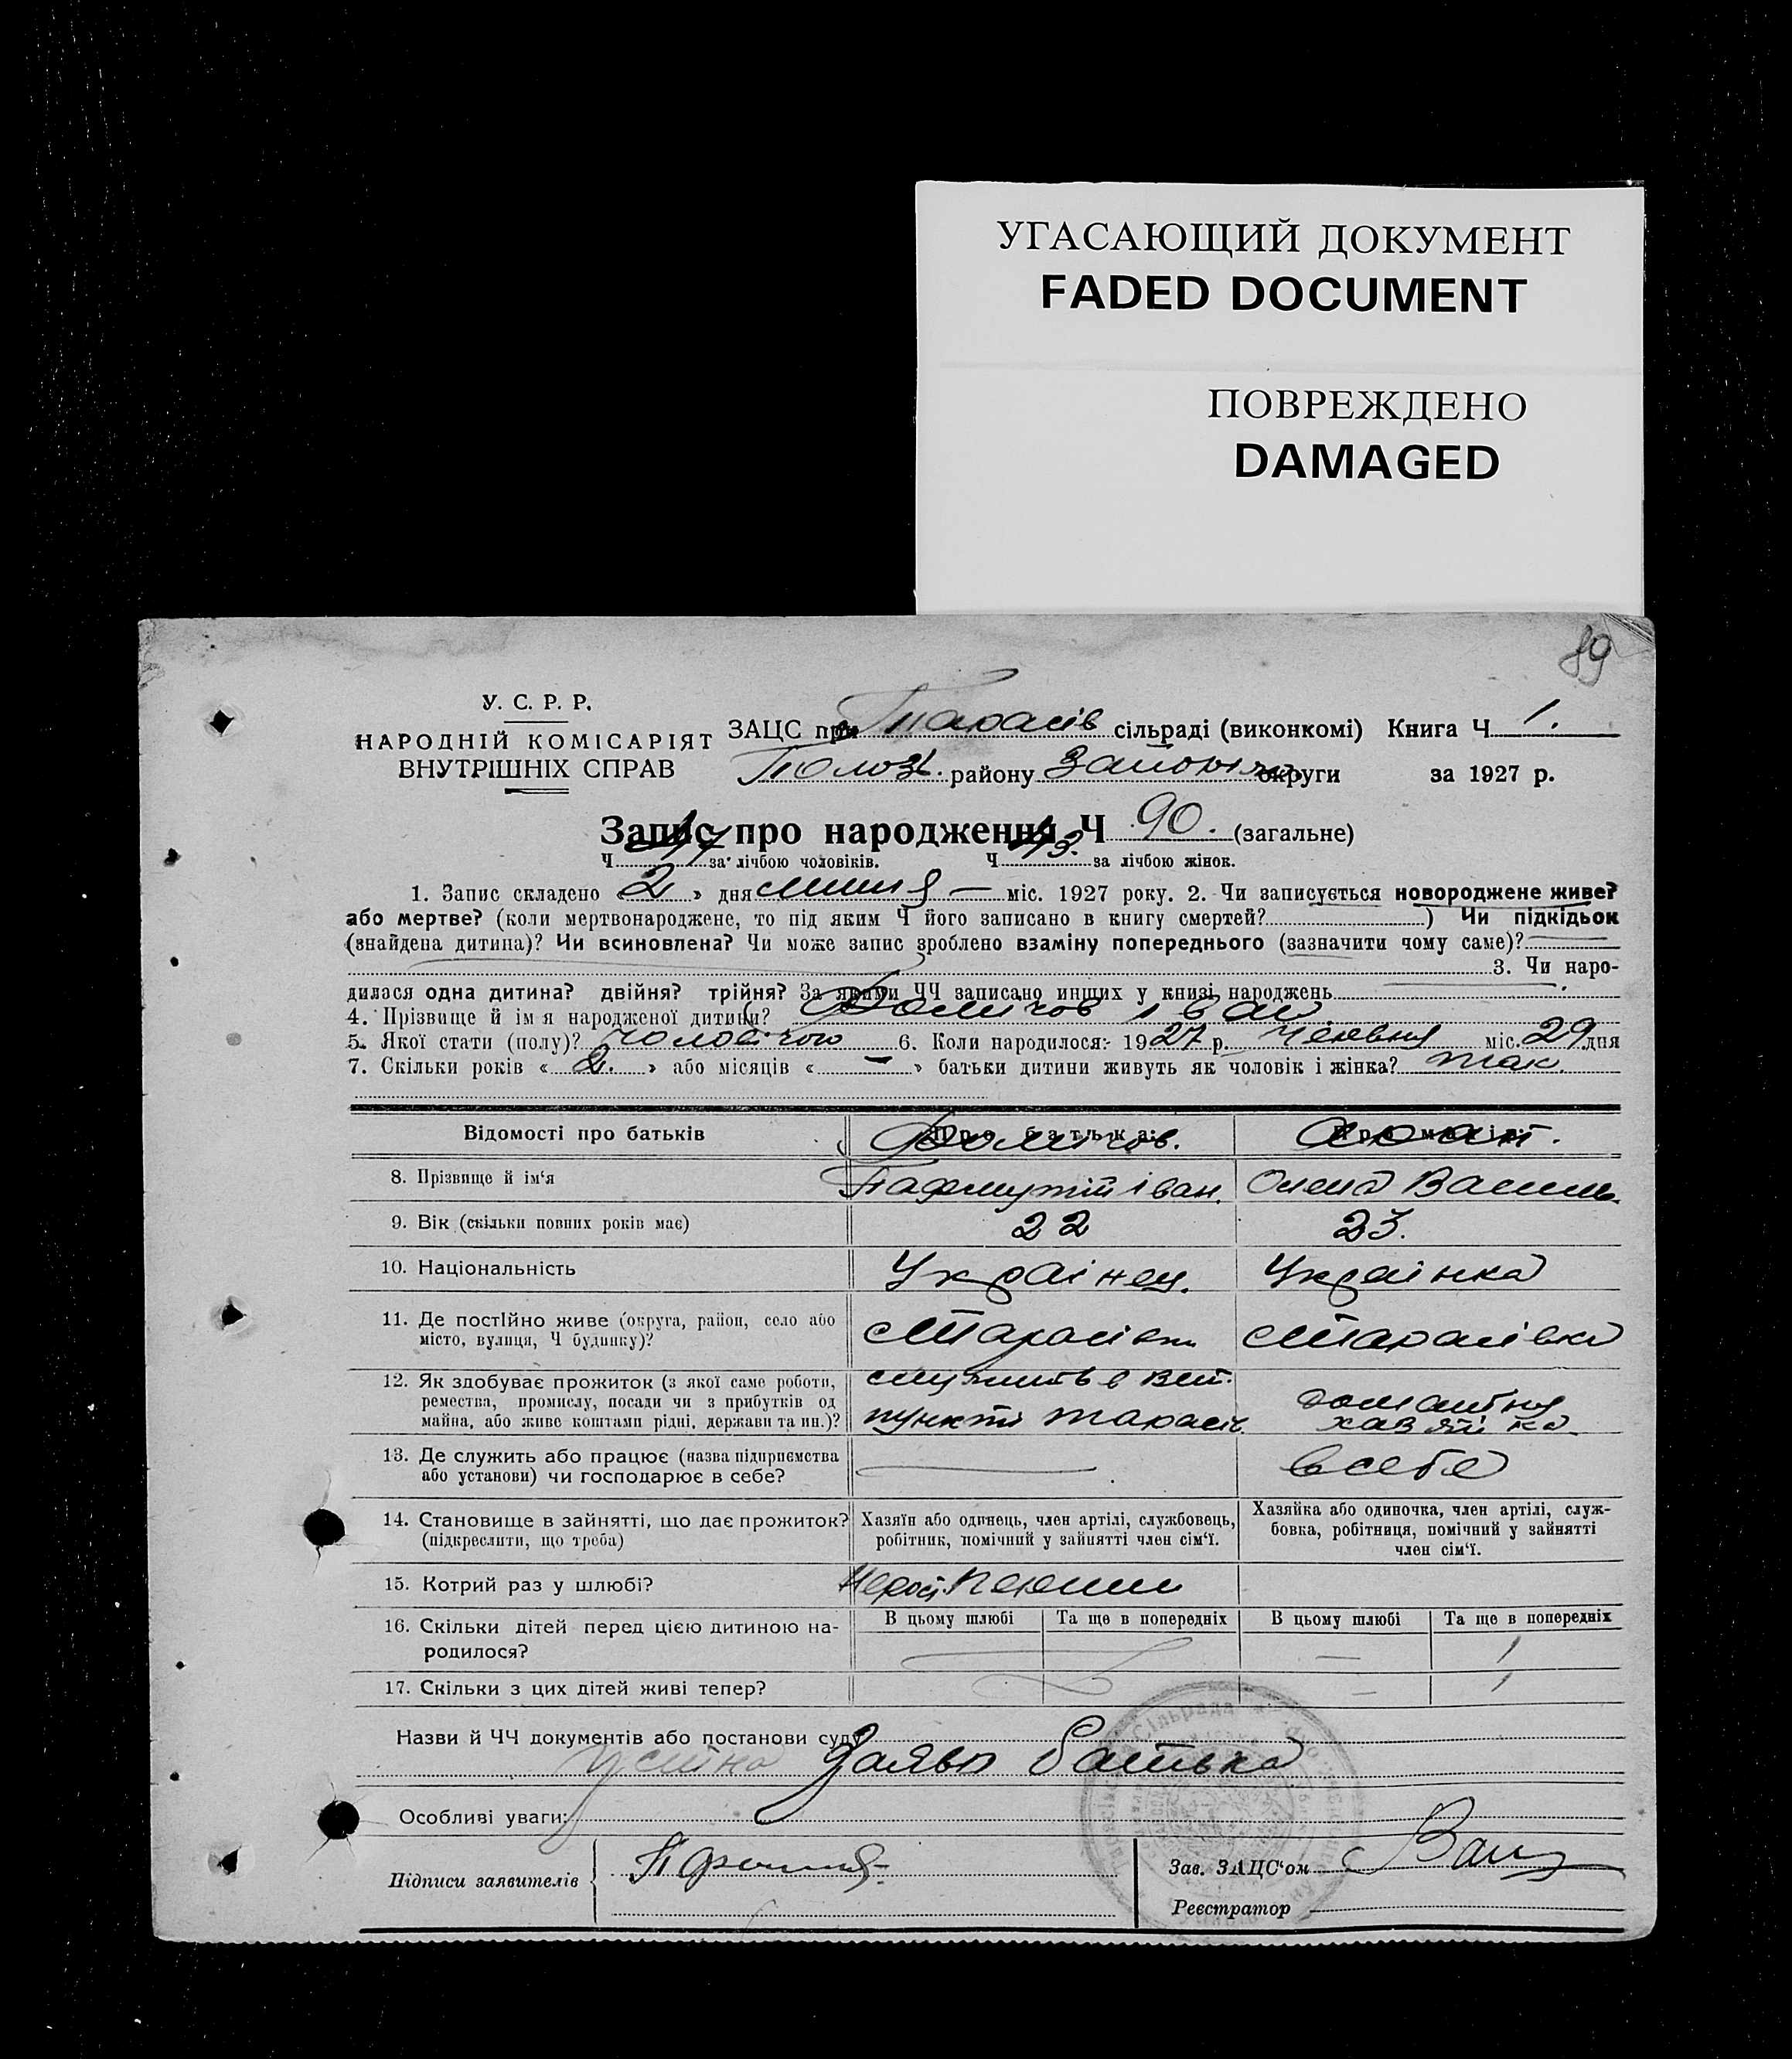 УГАСАЮЩИЙ ДОКУМЕНТ
FADED DOCUMENT
ПОВРЕЖДЕНО
DAMAGED
89
У. С. Р. Р.
НАРОДНІЙ КОМІСАРІЯТ
ВНУТРІШНІХ СПРАВ
ЗАЦС при Тарасів сільраді (виконкомі) Книга Ч 1.
Полог. району Запоріж. округи за 1927 р.
Запис про народження Ч 90. (загальне)
Ч 47 за лічбою чоловіків. Ч 43. за лічбою жінок.
1. Запис складено «2» дня липня — міс. 1927 року. 2. Чи записується новороджене живе?
або мертве? (коли мертвонароджене, то під яким Ч його записано в книгу смертей?) Чи підкідьок
(знайдена дитина)? Чи всиновлена? Чи може запис зроблено взаміну попереднього (зазначити чому саме)?
3. Чи наро-
дилася одна дитина? двійня? трійня? За якими ЧЧ записано инших у книзі народжень
4. Прізвище й ім'я народженої дитини? Іван
5. Якої стати (полу)? чоловічого 6. Коли народилося:- 1927 р. Червня міс. 29 дня
7. Скільки років «2.» або місяців «—» батьки дитини живуть як чоловік і жінка? так.
Відомості про батьків
Про батька:
Про матір:
8. Прізвище й ім'я
Пафнутій Іван.
Олена Василь.
9. Вік (скільки повних років має)
22
23.
10. Національність
Українец.
Українка
11. Де постійно живе (округа, район, село або
місто, вулиця, Ч будинку)?
с Тарасівка
с Тарасівка
12. Як здобуває прожиток (з якої саме роботи,
ремества, промислу, посади чи з прибутків од
майна, або живе коштами рідні, держави та ин.)?
служить в вет.
пункті Тарасів.
домашня
хазяйка
13. Де служить або працює (назва підприємства
або установи) чи господарює в себе?
в себе
14. Становище в зайнятті, що дає прожиток?
(підкреслити, що треба)
Хазяїн або одинець, член артілі, службовець,
робітник, помічний у зайнятті член сім'ї.
Хазяйка або одиночка, член артілі, служ-
бовка, робітниця, помічний у зайнятті
член сім'ї.
15. Котрий раз у шлюбі?
16. Скільки дітей перед цією дитиною на-
родилося?
В цьому шлюбі Та ще в попередніх В цьому шлюбі Та ще в попередніх
— 1
17. Скільки з цих дітей живі тепер?
— 1
Назви й ЧЧ документів або постанови суду
устна Заява батька
Особливі уваги:
Підписи заявителів
Зав. ЗАЦС'ом
Реєстратор